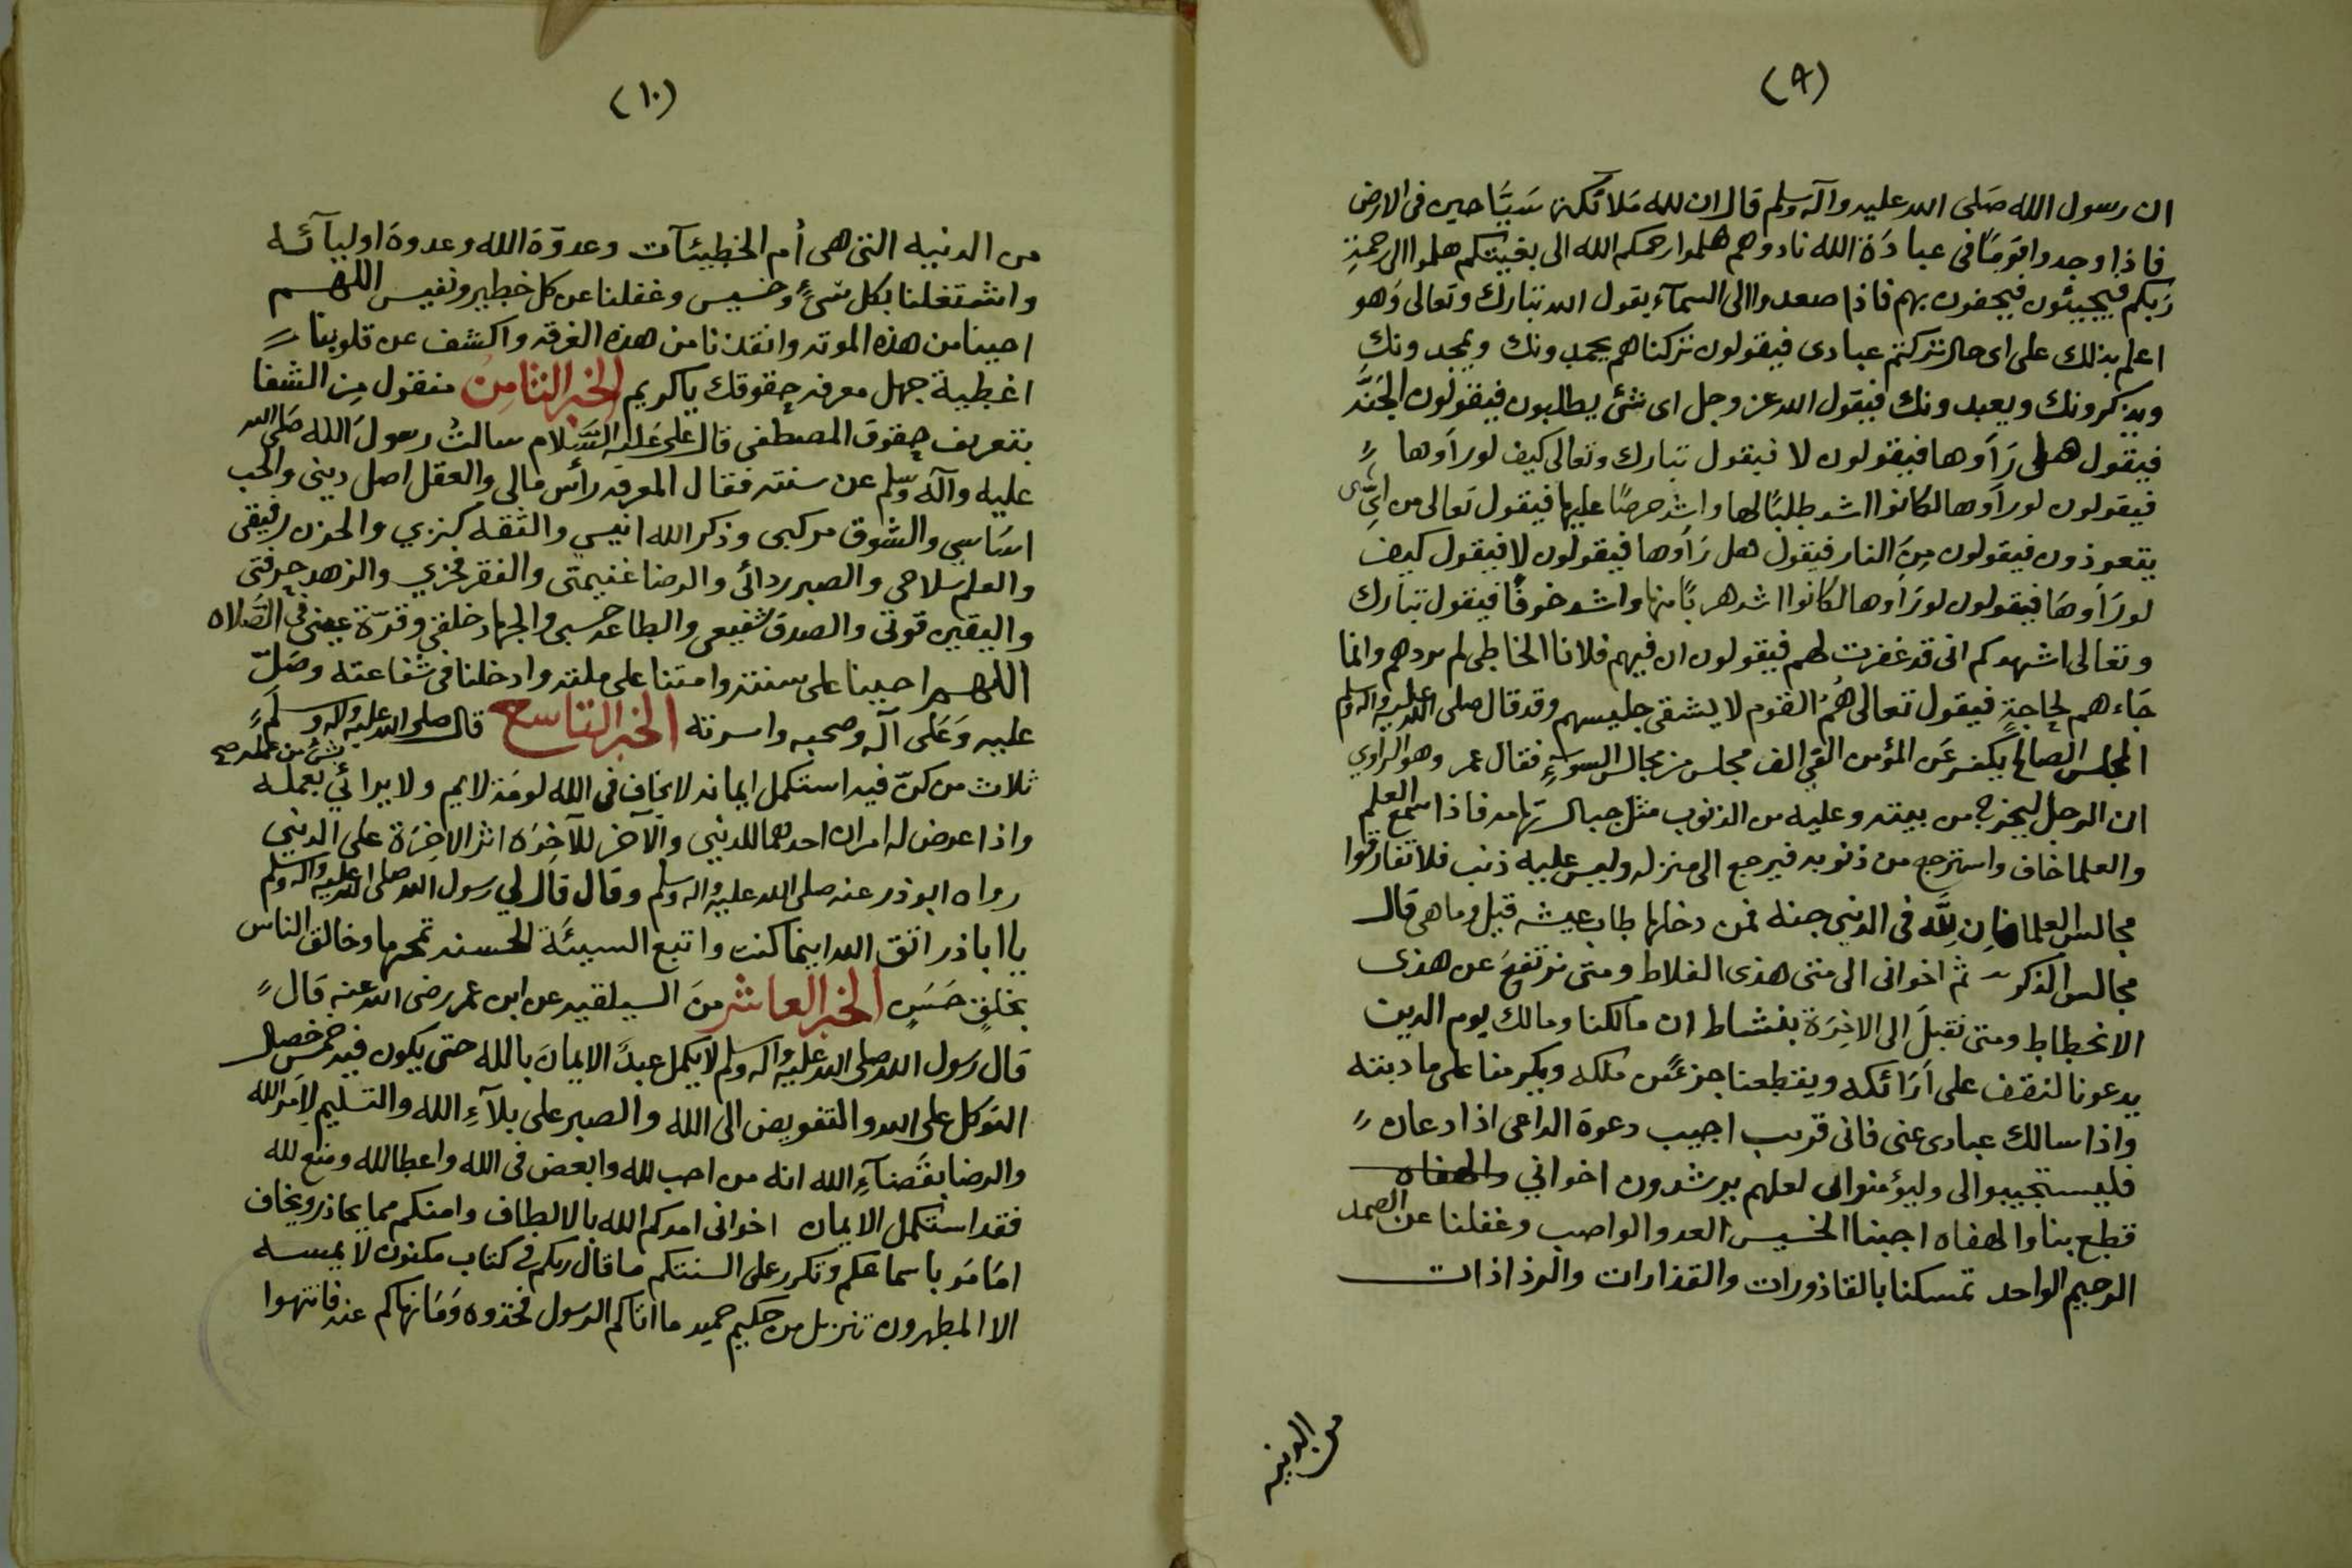 (٩)
ان رسول الله صَلى الله عليه وآله وسلم قال ان لله مَلائكة سَيَّاحين فى الارض
فاذا وجدوا قومًا فى عبادَة الله نادوهم هلموا رحمكم الله الى بغيتكم هلموا الى رحمةِ
رَبكم فيجيئون فيحفون بهم فاذا صعدوا الى السمآء يقول الله تبارك وتعالى وَهو
اعلم بذلك على اى حال تركتم عبادى فيقولون تركناهم يحمدونك ويمجدونك
ويذكرونك ويعبدونك فيقول الله عز وجل اى شئ يطلبون فيقولون الجَنَّه
فيقول هل رَأَوها فيقولون لا فيقول تبارك وتعالى كيف لو رأوها
فيقولون لو رأوها لكانوا اشد طلبًا لها واشد حرصًا عليها فيقول تعالى من اىّ شى
يتعوذون فيقولون مِنَ النار فيقول هل رَأَوها فيقولون لا فيقول كيف
لو رَأَوهَا فيقولون لو رَأَوها لكانوا اشد هربًا منها واشد خوفًا فيقول تبارك
وتعالى اشهدكم انى قد غفرت لهم فيقولون ان فيهم فلانا الخاطى لم يردهم وانما
جَاءهم لحاجةٍ فيقول تعالى هُمُ القوم لا يشقى جليسهم وقد قال صلى الله عليه واله وسلم
المجلس الصالح يكفر عَن المؤمن الفى الف مجلس من مجالس السوءِ فقال عمر وهو الراوي
ان الرجل ليخرج من بيته وعليه من الذنوب مثل جبال تهامه فاذا سمع العلم
والعلما خاف واسترجع من ذنوبه فيرجع الى منزله وليس عليه ذنب فلا تفارقوا
مجالس العلما فاِن لِلَّه فى الدنيى جنة فمن دخلها طاب عيشه قيل وما هى قال
مجالس الذكر ثم اخوانى الى متى هذى الغلاط ومتى نرتفعَ عن هذى
الانحطاط ومتى نقبلَ الى الاخِرَة بنشاط ان مالكنا ومالك يوم الدين
يدعونا لنقف على اَرَائكه ويقطعنا جزءً من ملكه ويكرمنا على مادبته
واذا سالك عبادى عنى فانى قريب اجيب دعوة الداعى اذا دعان
فليستجيبوا لى وليؤمنوا بى لعلهم يرشدون اخواني والهفاه
قطع بنا والهفاه اجبنا الخسيس العدو الواصب وغفلنا عن الصمد
الرحيم الواحد تمسكنا بالقاذورات والقذارات والرذاذات
من الدنيه
(١٠)
من الدنيه التى هى أم الخطيئآت وعدوّة الله وعدوة اوليآئه
واشتغلنا بكل شىءٍ وخسيس وغفلنا عن كل خطير ونفيس اللهم
احينا من هذه الموته وانقذنا من هذه الغرقه واكشف عن قلوبنا
اغطية جهل معرفة حقوقك ياكريم الخبر الثامِن منقول مِن الشفا
بتعريف حقوق المصطفى قال على عَليه السَّلام سالتُ رسولَ الله صَلى الله
عليه وآله وسَّلم عن سنته فقال المعرفه رأس مالى والعقل اصل دينى والحب
اسَاسي والشوق مركبى وذكر الله انيسي والثقه كنزي والحزن رفيقى
والعلم سلاحى والصبر ردائى والرضا غنيمتى والفقر فخري والزهد حرفتى
واليقين قوتى والصدق شفيعى والطاعه حسبى والجهاد خلقى وقرّة عينى فى الصَّلاه
اللهم احيينا على سنته وامتنا على ملته وادخلنا فى شفاعته وصَلّ
عليه وَعَلى آله وصحبه واسرته الخبر التاسع قال صلى الله عليه واله وسلم
بشئ من عمله صح
ثلاث من كنّ فيه استكمل ايمانه لا يخاف فى الله لومَة لايم ولا يرائي بعمله
واذا عرض له امران احدهما للدنيى والآخر للآخِرَه اثر الاخِرَة على الدنيي
رواه ابوذر عنه صلى الله عليه واله وسلم وقال قال لي رسول الله صلى الله عليه واله وسلم
يا اباذر اتق الله اينما كنت واتبع السيئة الحسنه تمحها وخالق الناس
بخلقٍ حَسَنٍ الخبر العاشر منَ السيلقيه عن ابن عمر رضى الله عنه قال
قال رسول الله صلى الله عليه واله وسلم لا يكمل عبدَ الايمانَ بالله حتى يكون فيه خمس خصال
التوكل على الله والتفويض الى الله والصبر على بلآءِ الله والتسليم لامر الله
والرضا بقَضآءِ الله انه من احب لله وابعض فى الله واعطا لله ومنع لله
فقد استكمل الايمان اخوانى امدكم الله بالالطاف وامنكم مما يحاذر ويخاف
امَا مَر باسماعكم وتكرر على السنتكم ما قال ربكم فى كتاب مكنون لا يمسه
الا المطهرون تنزيل من حكيم حميد ما اتاكم الرسول فخذوه وَمَا نهاكم عنه فانتهوا